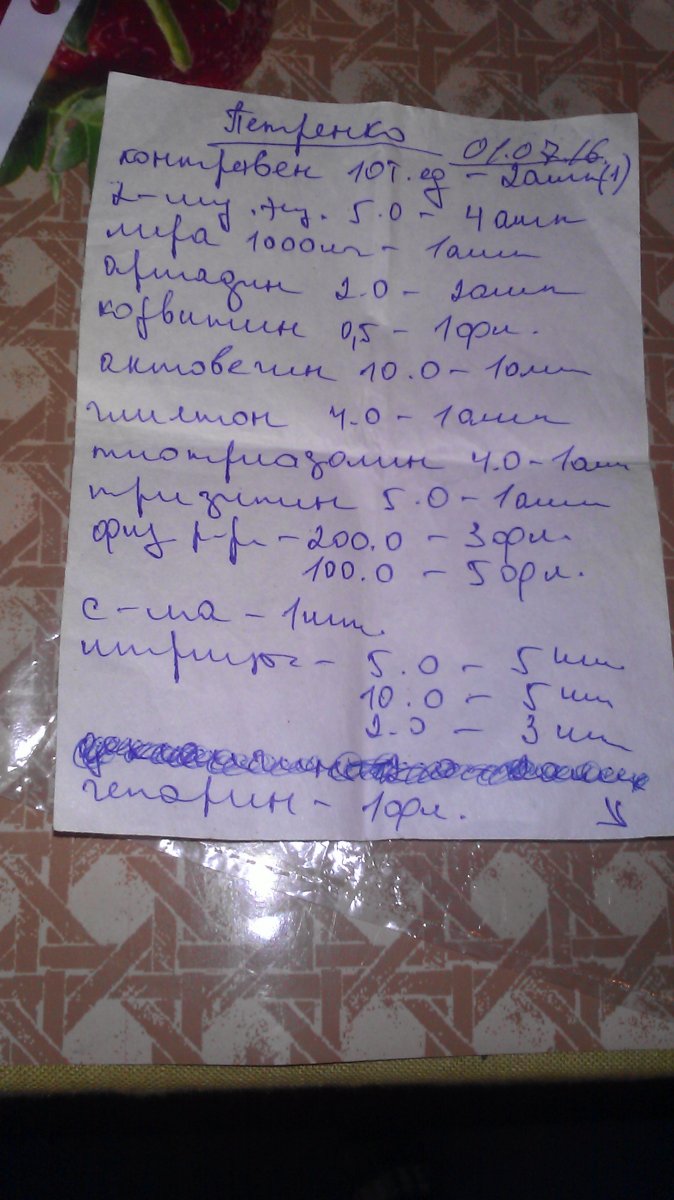 Петренко 01.07.16.
контривен 10т.ед - 2амп(1)
5.0 - 4 амп
лира 1000мг - 1амп
армадин 2.0 - 2амп
корвитин 0,5 - 1фл.
актовегин 10.0 - 1амп
4.0 - 1амп
тиотриазолин 4.0 - 1амп
тризипин 5.0 - 1амп
физ р-р. - 200.0 - 3фл.
100.0 - 5фл.
с-ма - 1шт.
шприцы - 5.0 - 5шт
10.0 - 5шт
2.0 - 3шт
гепарин - 1фл.